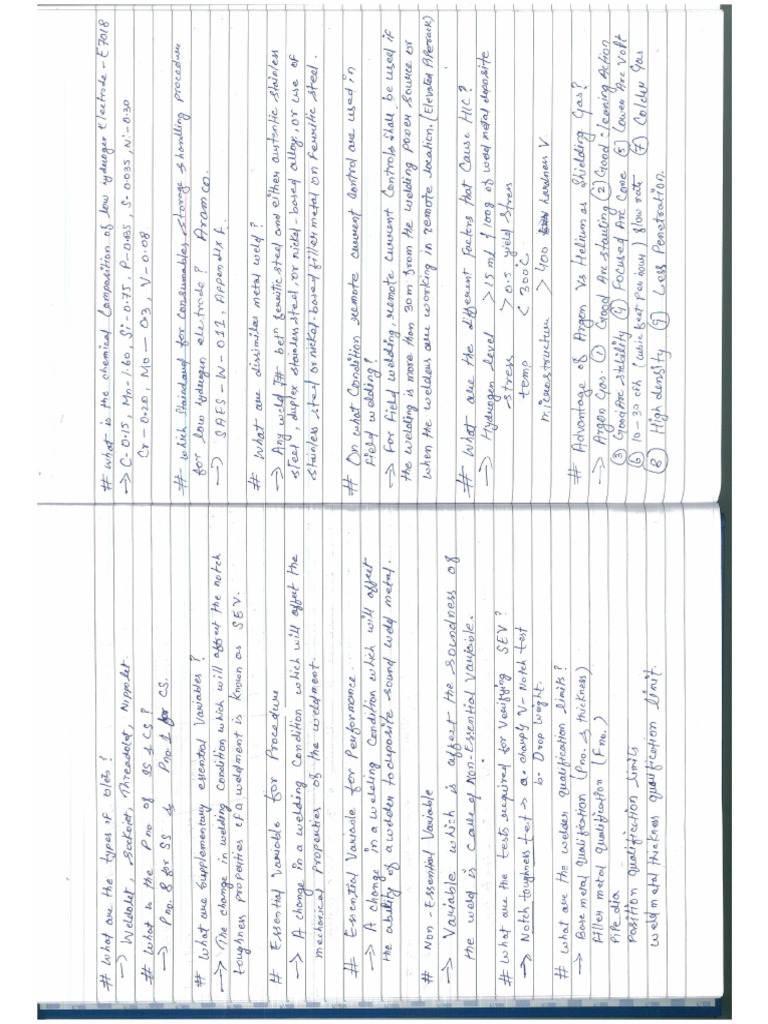 # What are the types of Olets?
→ Weldolet, Sockolet, Threadolet, Nippolet.
# What is the P no of SS & CS?
→ P no. 8 for SS & P no. 1 for CS.
# What are Supplementary essential Variables?
→ The change in welding Condition which will affect the notch
toughness properties of a weldment is known as SEV.
# Essential Variable for Procedure
→ A change in a welding Condition which will affect the
mechanical properties of the weldment.
# Essential Variable for Performance.
→ A change in a welding Condition which will affect
the ability of a welder to deposite sound weld metal.
# Non-Essential Variable
→ Variable which is affect the soundness of
the weld is called Non-Essential Variable.
# What are the tests required for Verifying SEV?
→ Notch toughness test → a. charpy V-Notch test
b. Drop weight.
# What are the welder qualification limits?
→ Base metal qualification (P no. & thickness)
filler metal qualification (F no.)
Pipe dia
Position qualification limits
weld metal thickness qualification limit.
# What is the chemical Composition of low hydrogen electrode - E7018
→ C-0.15, Mn-1.60, Si-0.75, P-0.035, S-0.035, Ni-0.30
Cr-0.20, Mo-0.3, V-0.08
# Which Standard for Consumables storage & handling procedure
for low hydrogen electrode? Aramco.
→ SAES-W-011, Appendix F.
# What are dissimilar metal weld?
→ Any weld betn ferritic steel and either austenitic stainless
steel, duplex stainless steel, or nickel-based alloy, or use of
stainless steel or nickel-based filler metal on ferritic steel.
# On what Condition remote current control are used in
field welding?
→ For field welding, remote current Controls shall be used if
the welding is more than 30m from the welding power source or
when the welders are working in remote location. (Elevated Piperack)
# What are the different factors that Cause HIC?
→ Hydrogen level >15 ml/100g of weld metal deposite
stress >0.5 yield stress
temp < 300°C
microstructure >400 hardness V.
# Advantage of Argon Vs Helium as Shielding Gas?
→ Argon Gas. ① Good Arc starting ② Good cleaning Action
③ Good Arc stability ④ Focused Arc Cone ⑤ Lower Arc Volt
⑥ 10-30 cfh (cubic feet per hour) flow rate ⑦ Colder Gas
⑧ High density ⑨ Less Penetration.